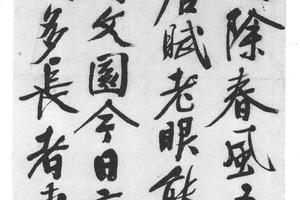 除春風
賦老眼能
文園今日
多長者